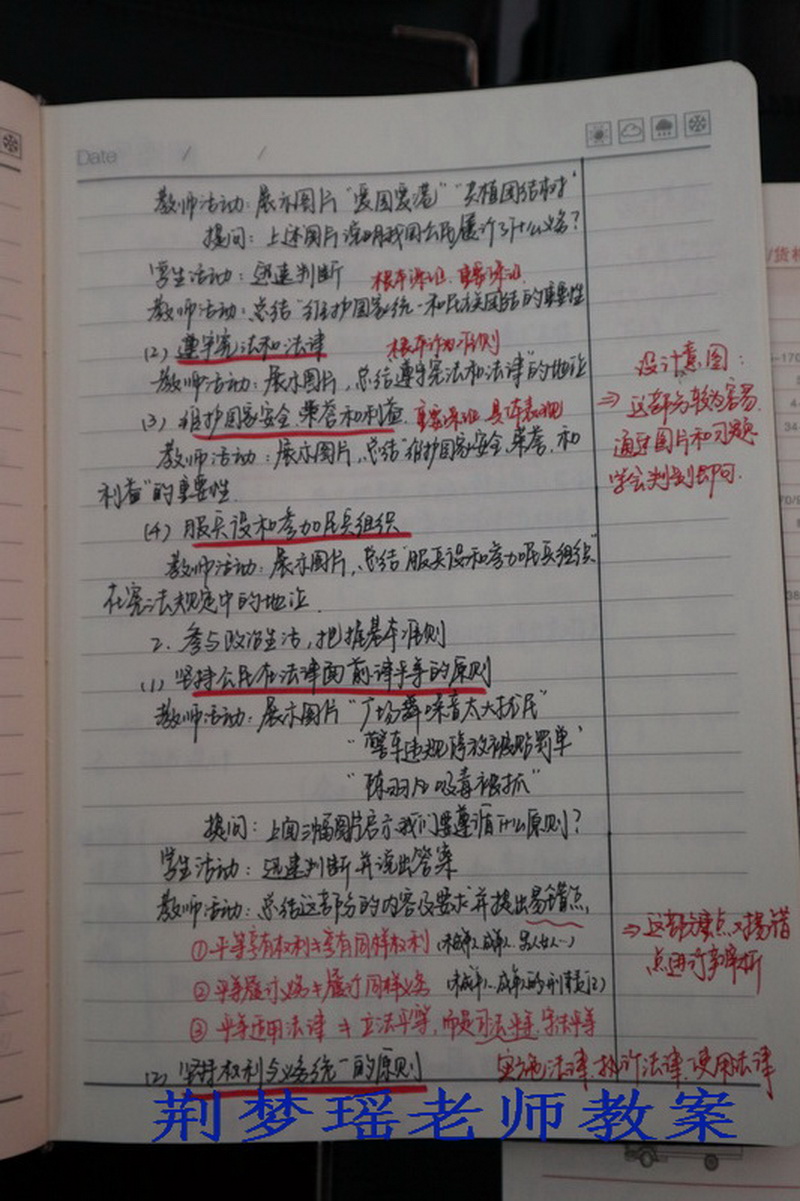 Date / /
教师活动：展示图片“爱国爱港”“共植团结树”
提问：上述图片说明我国公民履行了什么义务？
学生活动：迅速判断 根本课题、重要课题
教师活动：总结“维护国家统一和民族团结”的重要性
（2）遵守宪法和法律 根本行为准则
教师活动：展示图片，总结“遵守宪法和法律”的地位
设计意图：
（3）维护国家安全、荣誉和利益 具体表现
⇒ 这部分较为容易
教师活动：展示图片，总结“维护国家安全、荣誉、和
通过图片和习题
利益”的重要性
学会判别即可.
（4）服兵役和参加民兵组织
教师活动：展示图片，总结“服兵役和参加民兵组织”
在宪法规定中的地位
2、参与政治生活，把握基本准则
（1）坚持公民在法律面前一律平等的原则
教师活动：展示图片“广场舞噪音太大扰民”
“警车违规停放被贴罚单”
“陈羽凡吸毒被抓”
提问：上面三幅图片启示我们要遵循什么原则？
学生活动：迅速判断并说出答案
教师活动：总结这部分的内容及要求并提出易错点
⇒ 这部分要点
①平等享有权利≠享有同样权利（未成年人、成年人、男人女人…）
点进行辨析
②平等履行义务≠履行同样义务（未成年人、成年人的刑责）
③平等适用法律≠立法平等，而是司法平等、守法平等
（2）坚持权利与义务统一的原则 实施法律、执行法律、使用法律
荆梦瑶老师教案